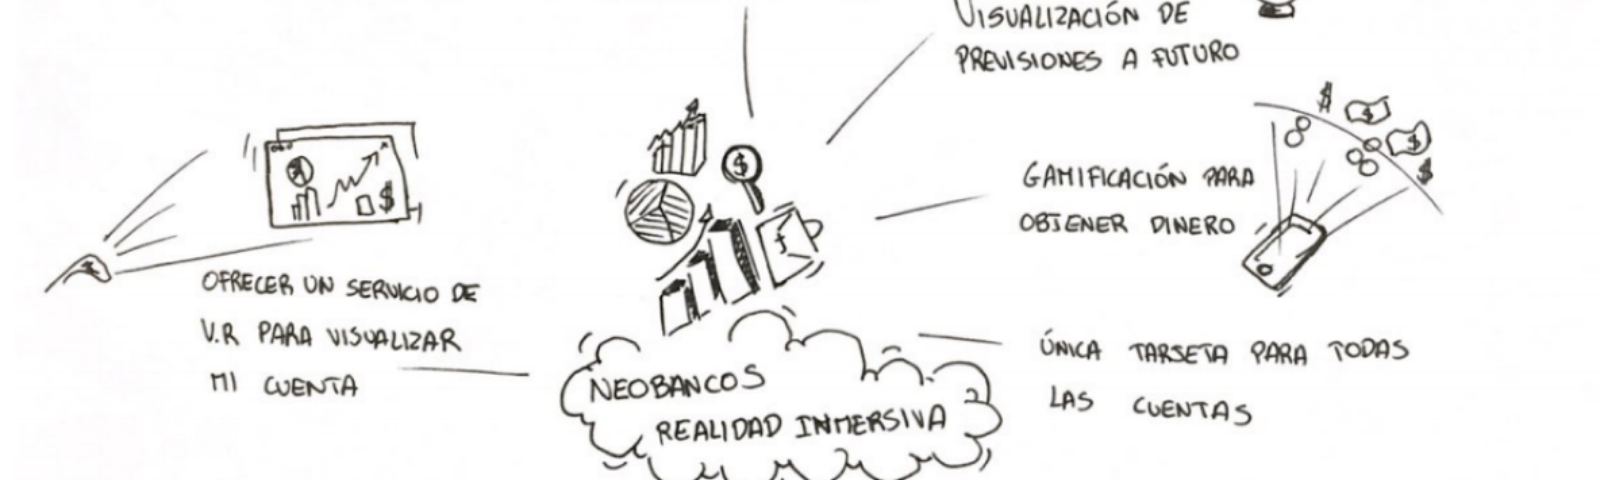 VISUALIZACIÓN DE
PREVISIONES A FUTURO
GAMIFICACIÓN PARA
OBTENER DINERO
OFRECER UN SERVICIO DE
V.R PARA VISUALIZAR
MI CUENTA
NEOBANCOS
REALIDAD INMERSIVA
ÚNICA TARJETA PARA TODAS
LAS CUENTAS